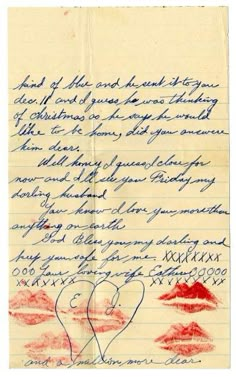 kind of blue and he sent it to you
dec. 11 and I guess he was thinking
of christmas as he says he would
like to be home, did you answere
him dear.
Well honey I guess I close for
now and I'll see you Friday my
darling husband
You know I love you more than
anything on earth
God Bless you my darling and
keep you safe for me. XXXXXXXX
OOO Your loving wife Esther OOOOO
XXXXXXX XXXXXXXX
E J.
and a million more dear.